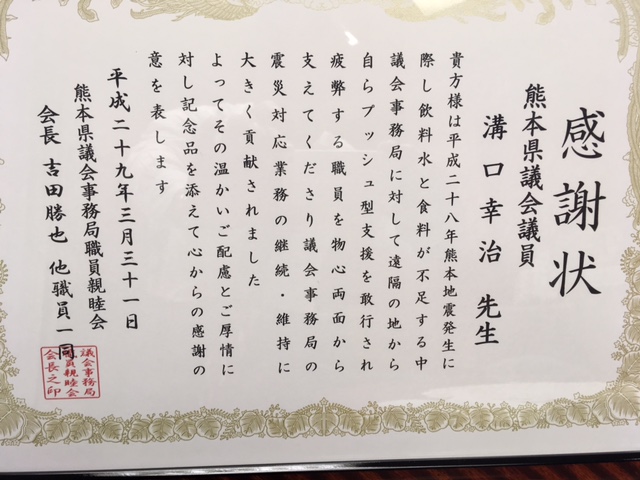 感謝状
熊本県議会議員
溝口幸治 先生
貴方様は平成二十八年熊本地震発生に
際し飲料水と食料が不足する中
議会事務局に対して遠隔の地から
自らプッシュ型支援を敢行され
疲弊する職員を物心両面から
支えてくださり議会事務局の
震災対応業務の継続・維持に
大きく貢献されました
よってその温かいご配慮とご厚情に
対し記念品を添えて心からの感謝の
意を表します
平成二十九年三月三十一日
熊本県議会事務局職員親睦会
会長 吉田勝也 他職員一同
議会事務局
職員親睦会
会長之印